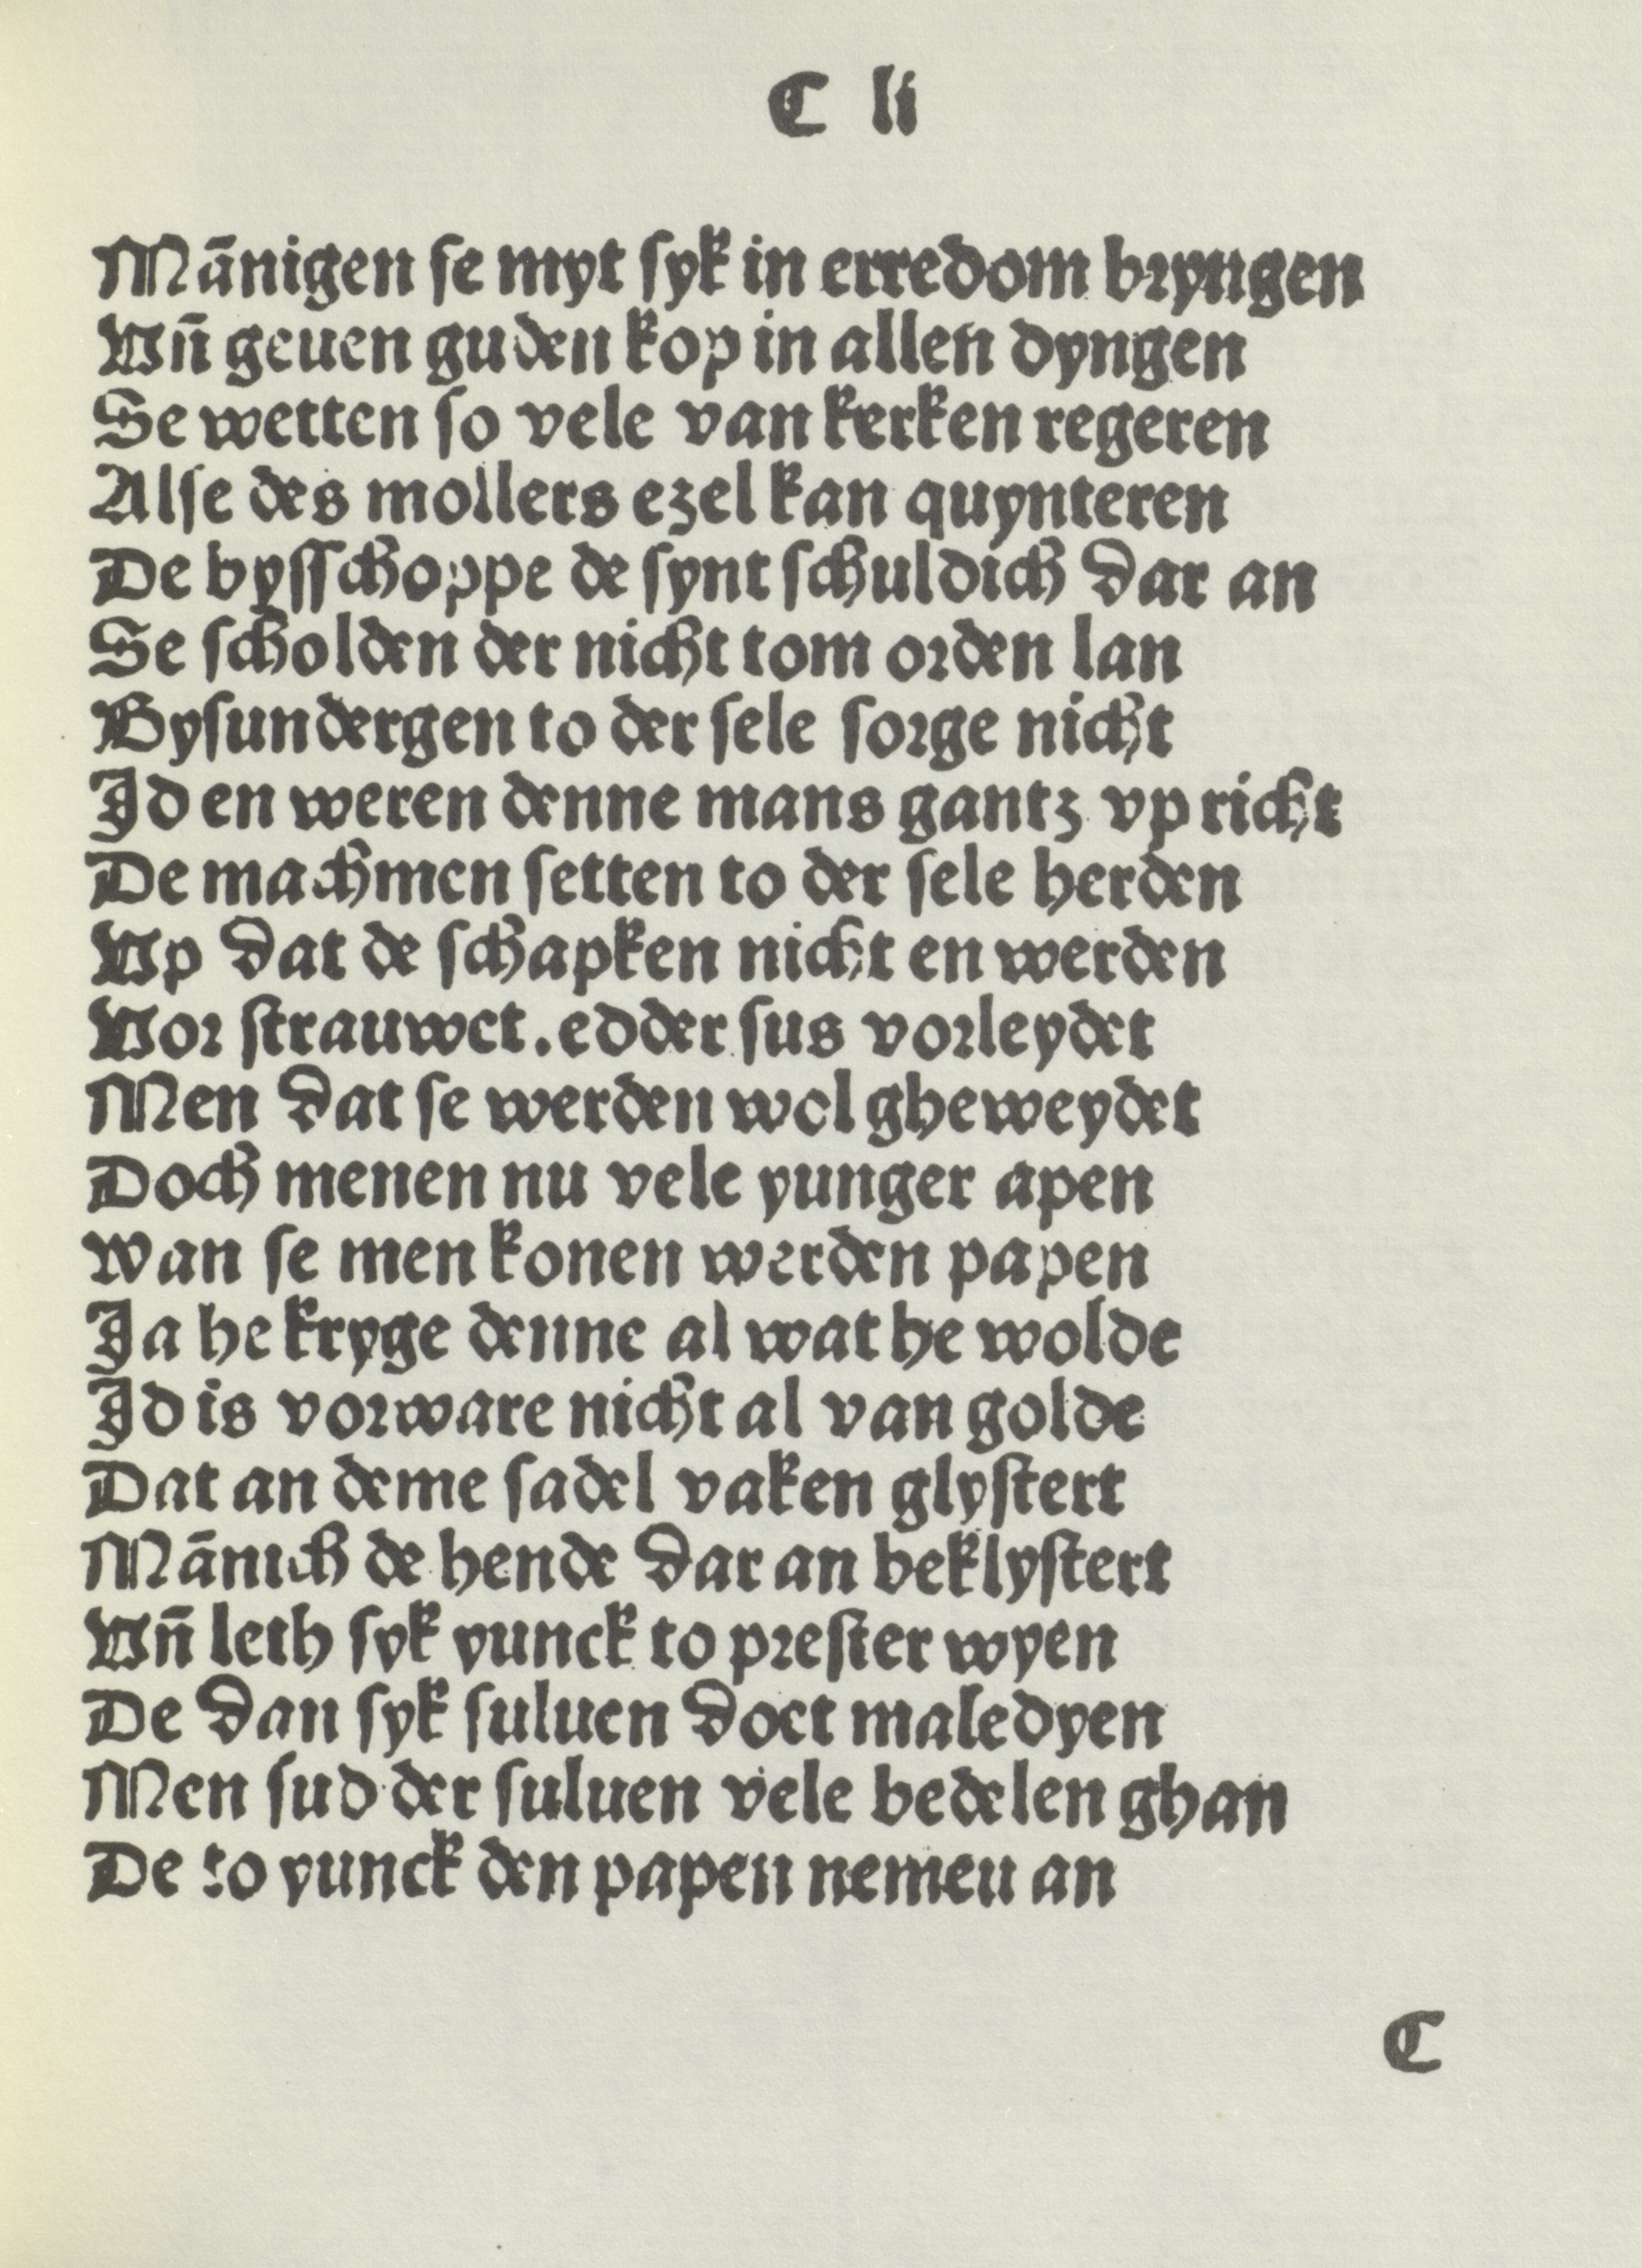 C li
Mānigen se myt syk in erredom bryngen
Vñ geuen guden kop in allen dyngen
Se wetten so vele van kerken regeren
Alse des mollers ezel kan quynteren
De bysschoppe de synt schuldich dar an
Se scholden der nicht tom orden lan
Bysundergen to der sele sorge nicht
Id en weren denne mans gantz vp richt
De machmen setten to der sele herden
Vp dat de schapken nicht en werden
Vor strauwet. edder sus vorleydet
Men dat se werden wol gheweydet
Doch menen nu vele yunger apen
Wan se men konen werden papen
Ja he kryge denne al wat he wolde
Id is vorware nicht al van golde
Dat an deme sadel vaken glystert
Mānich de hende dar an beklystert
Vñ leth syk yunck to prester wyen
De dan syk suluen doet maledyen
Men sud der suluen vele bedelen ghan
De to yunck den papen nemen an
C